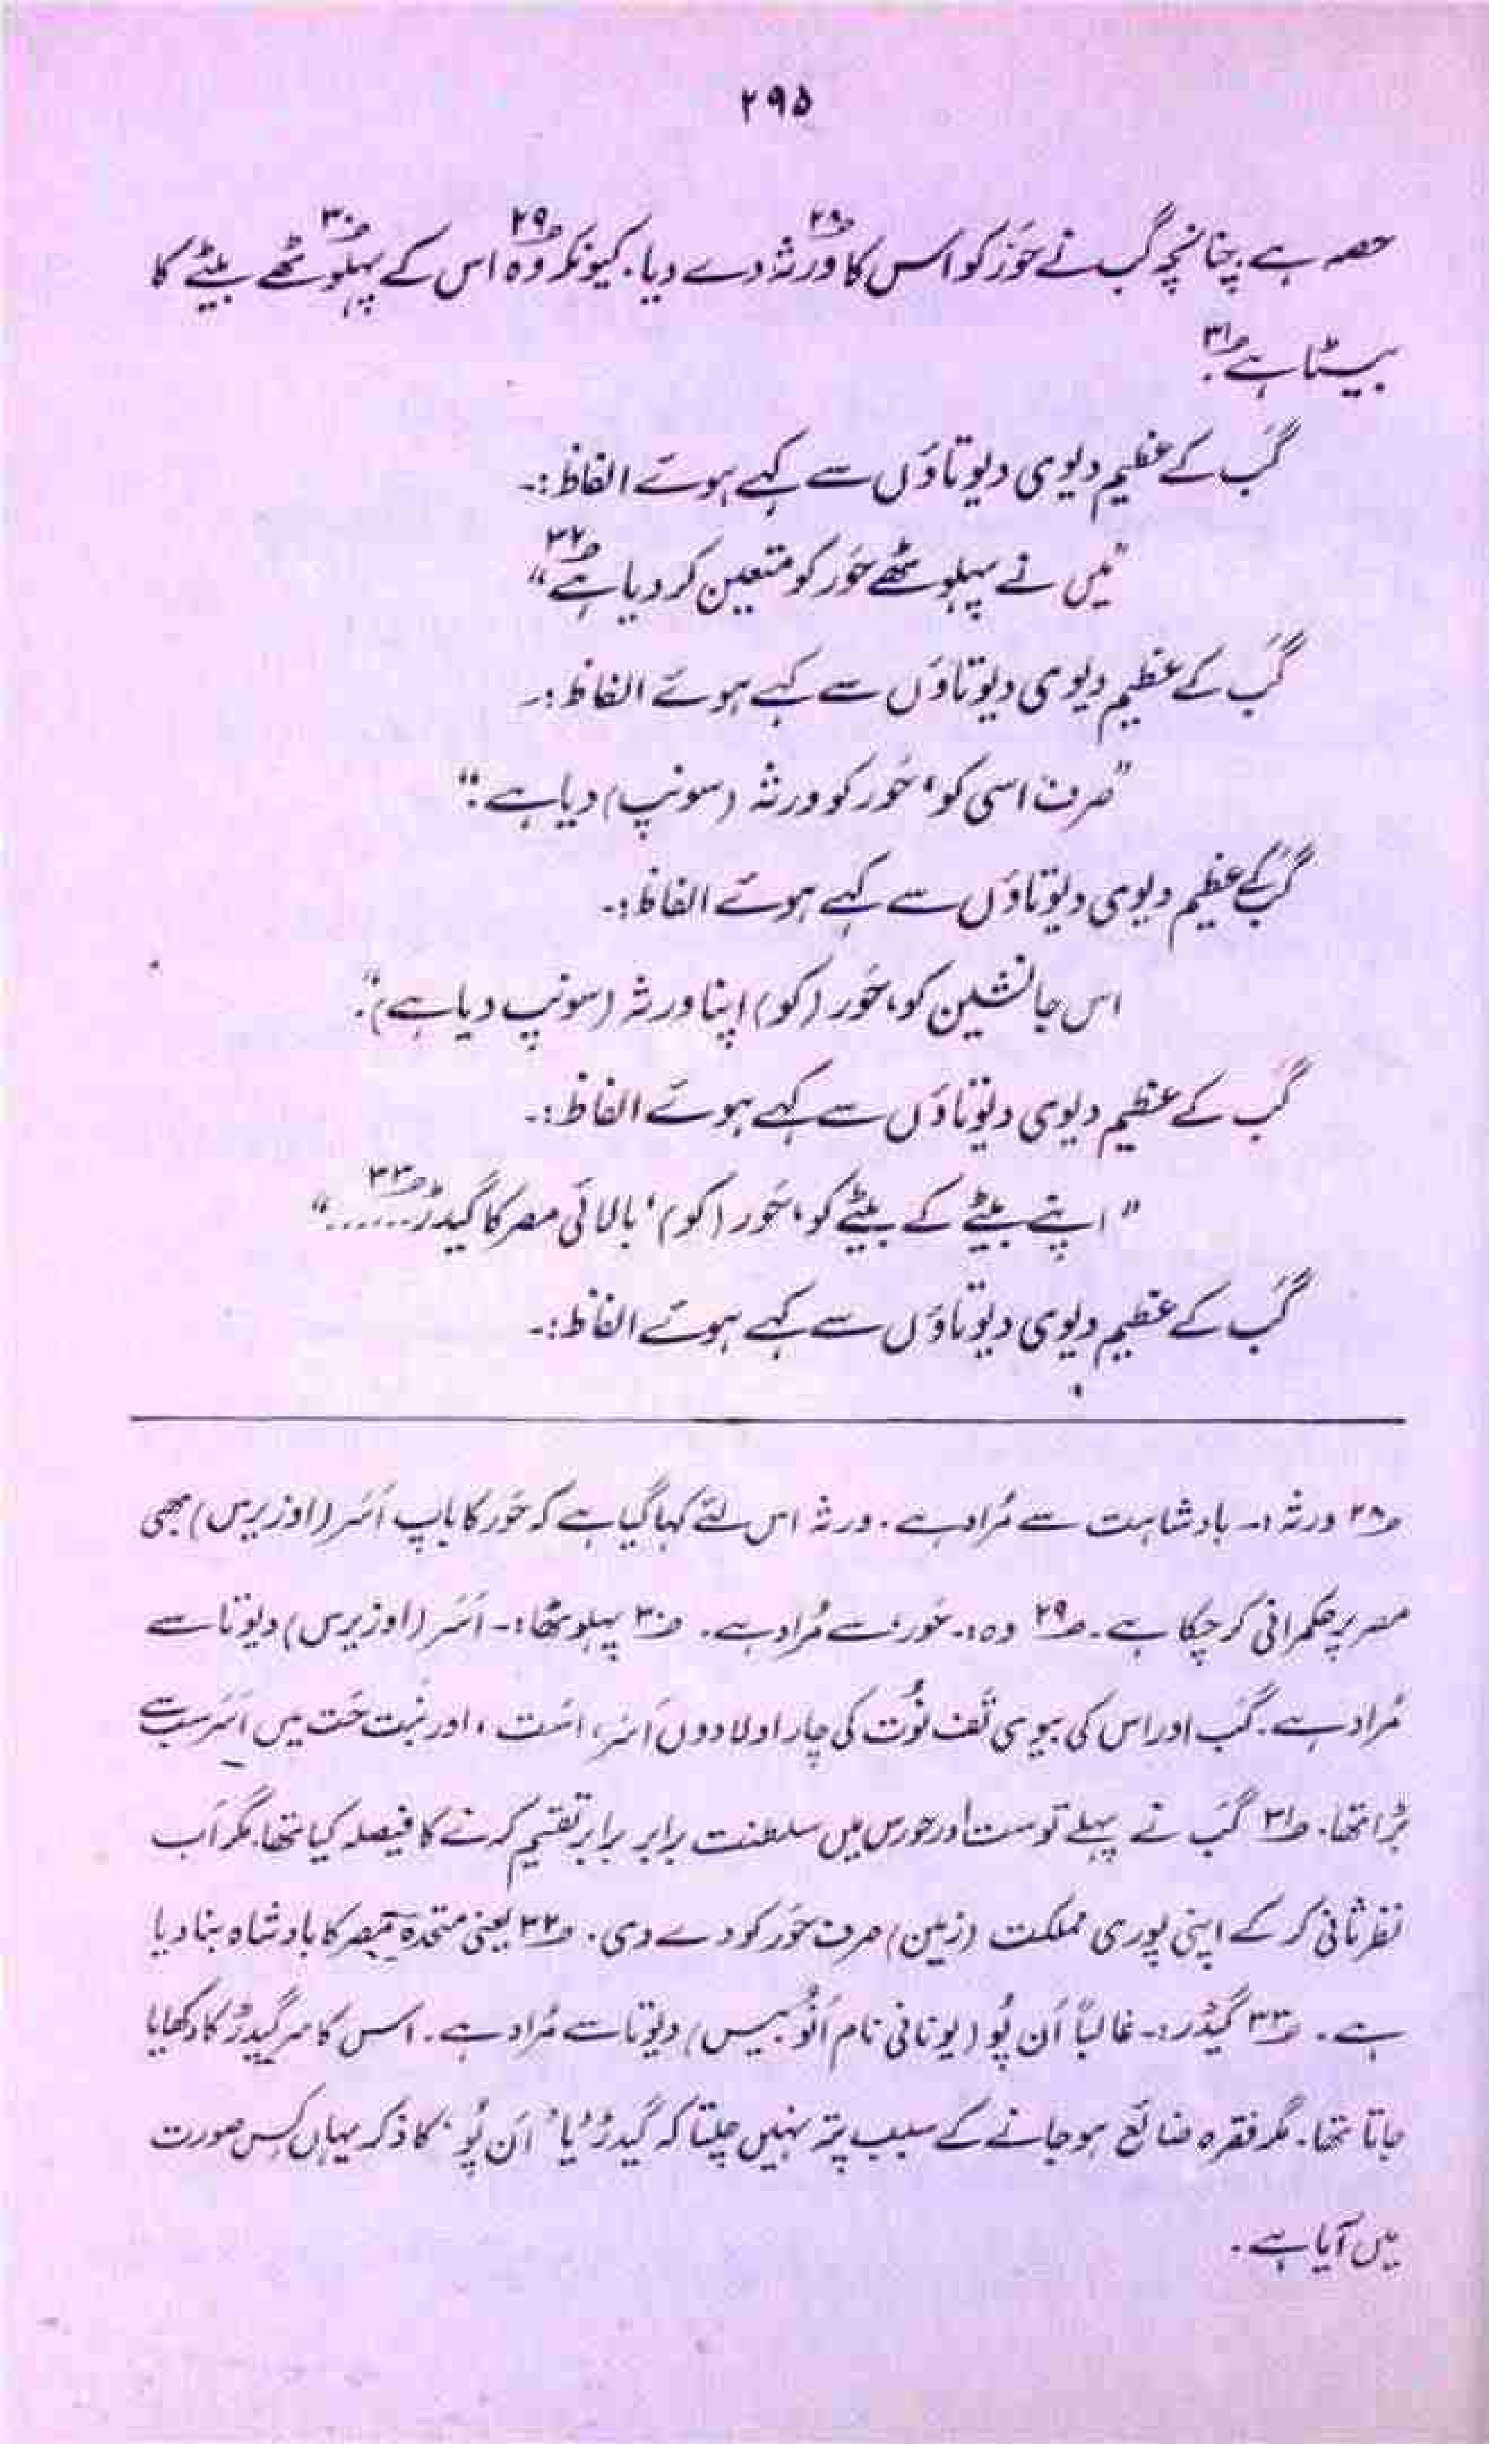 ۲۹۵
حصہ ہے۔ چنانچہ گب نے حَوَر کو اس کا ورثہ؂۲۸ دے دیا۔ کیونکہ وہ؂۲۹ اس کے پہلوٹھے؂۳۰ بیٹے کا
بیٹا ہے؂۳۱۔
گَب کے عظیم دیوی دیوتاؤں سے کہے ہوئے الفاظ:۔
”میں نے پہلوٹھے حَور کو متعین کر دیا ہے؂۳۲“
گَب کے عظیم دیوی دیوتاؤں سے کہے ہوئے الفاظ:۔
”صرف اسی کو، حَور کو ورثہ (سونپ) دیا ہے۔“
گَب کے عظیم دیوی دیوتاؤں سے کہے ہوئے الفاظ:۔
اس جانشین کو، حَور (کو) اپنا ورثہ (سونپ دیا ہے)۔“
گَب کے عظیم دیوی دیوتاؤں سے کہے ہوئے الفاظ:۔
”اپنے بیٹے کے بیٹے کو، حَور (کو)، بالائی مصر کا گیدڑ؂۳۳......“
گَب کے عظیم دیوی دیوتاؤں سے کہے ہوئے الفاظ:۔
؂۲۸ ورثہ:۔ بادشاہت سے مُراد ہے۔ ورثہ اس لئے کہا گیا ہے کہ حَور کا باپ اَسَر (اوزیرس) بھی
مصر پر حکمرانی کر چکا ہے۔ ؂۲۹ وہ:۔ حَور، سے مُراد ہے۔ ؂۳۰ پہلوٹھا:۔ اَسَر (اوزیرس) دیوتا سے
مُراد ہے۔ گَب اور اس کی بیوی نُوت کی چار اولادوں اَسَر، اَسَت، اور نبت حَت میں اَسَر سب سے
بڑا تھا۔ ؂۳۱ گَب نے پہلے تو ست اور حورس میں سلطنت برابر برابر تقسیم کرنے کا فیصلہ کیا تھا۔ مگر اَب
نظرثانی کر کے اپنی پوری مملکت (زمین) صرف حَور کو دے دی۔ ؂۳۲ یعنی متحدہ مصر کا بادشاہ بنا دیا
ہے۔ ؂۳۳ گیدڑ:۔ غالباً اَن پُو (یونانی نام اَنُوبیس) دیوتا سے مُراد ہے۔ اس کا سر گیدڑ کا دکھایا
جاتا تھا۔ مگر فقرہ ضائع ہو جانے کے سبب پتہ نہیں چلتا کہ گیدڑ، یا ’اَن پُو‘ کا ذکر یہاں کس صورت
میں آیا ہے۔